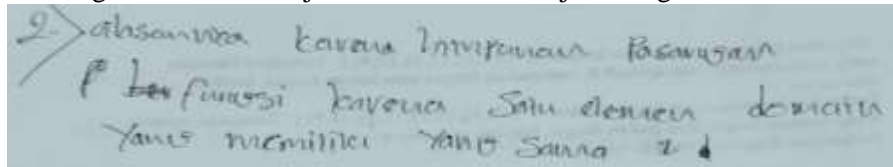 2. alasannya karena himpunan Pasangan
P fungsi karena Satu elemen domain
Yang memiliki Yang Sama